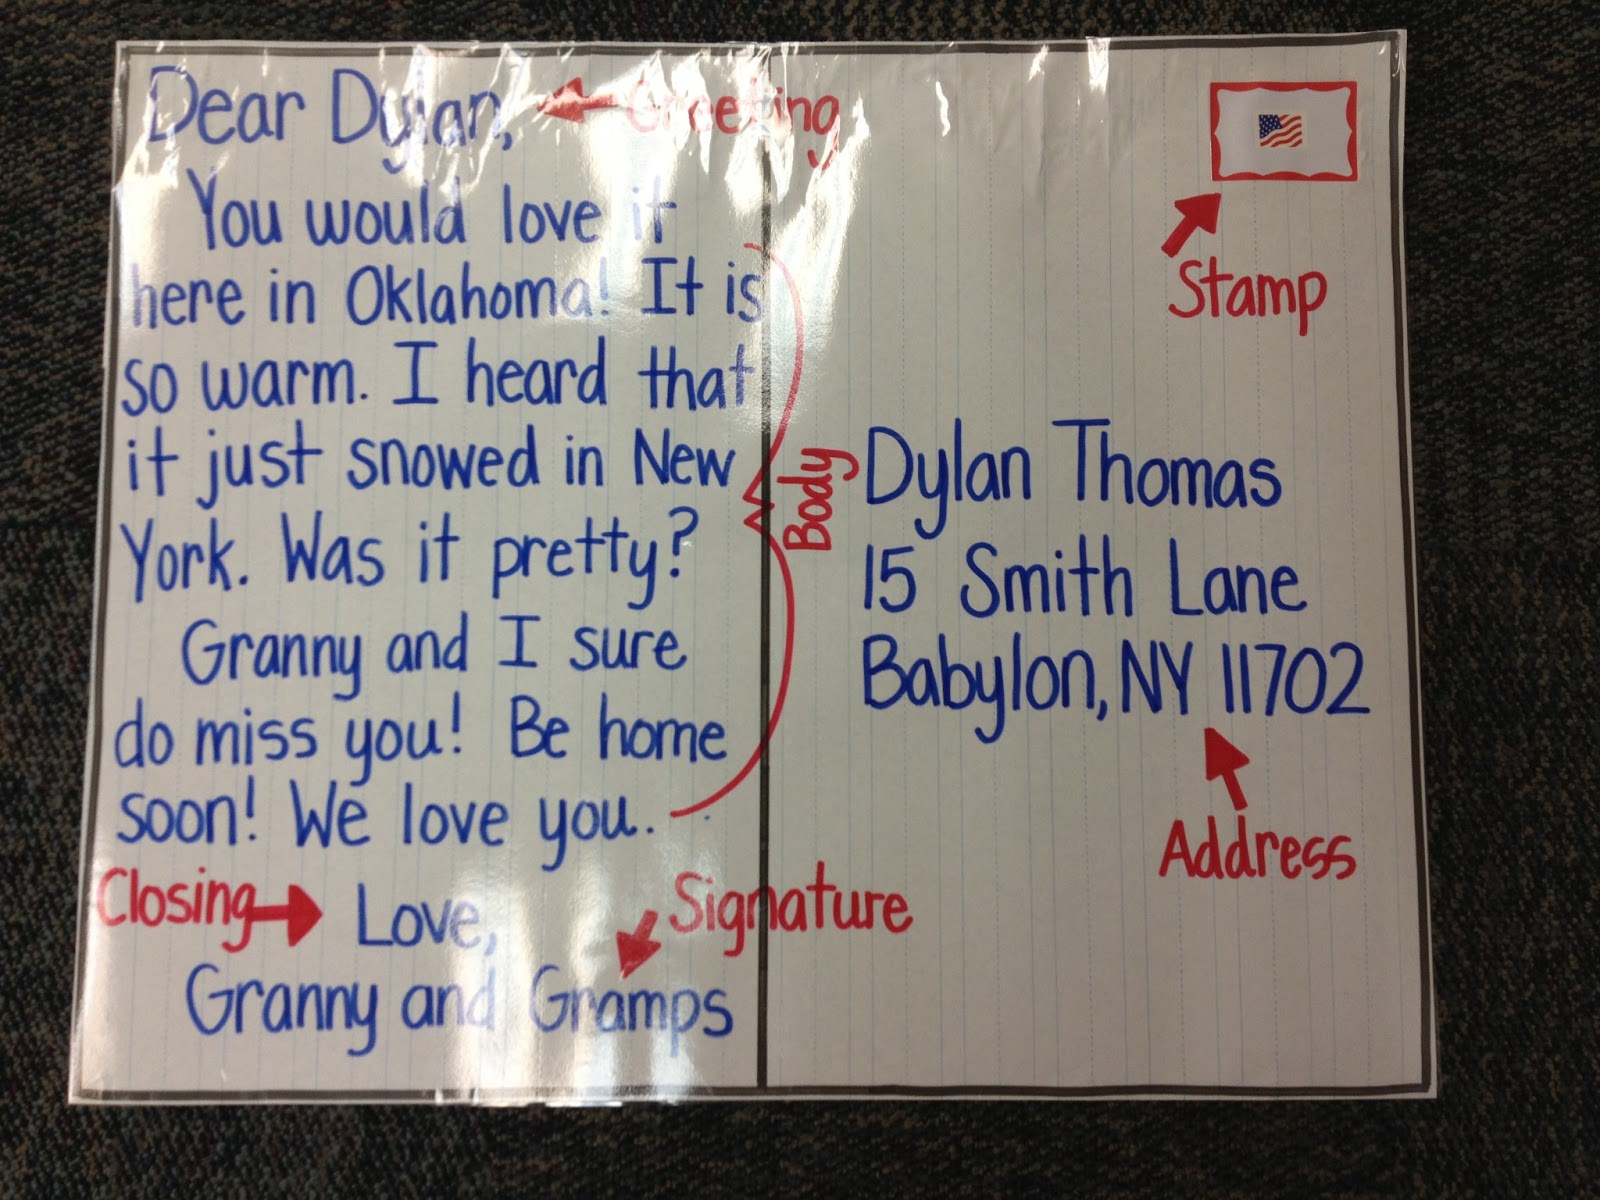 Dear Dylan,
Greeting
You would love it
here in Oklahoma! It is
so warm. I heard that
it just snowed in New
York. Was it pretty?
Granny and I sure
do miss you! Be home
soon! We love you.
Body
Closing
Love,
Signature
Granny and Gramps
Stamp
Dylan Thomas
15 Smith Lane
Babylon, NY 11702
Address